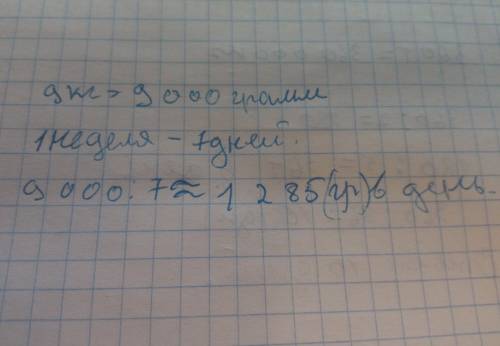 9кг = 9 000 грамм
1 неделя - 7 дней.
9 000 : 7 ≈ 1 285 (гр) в день.